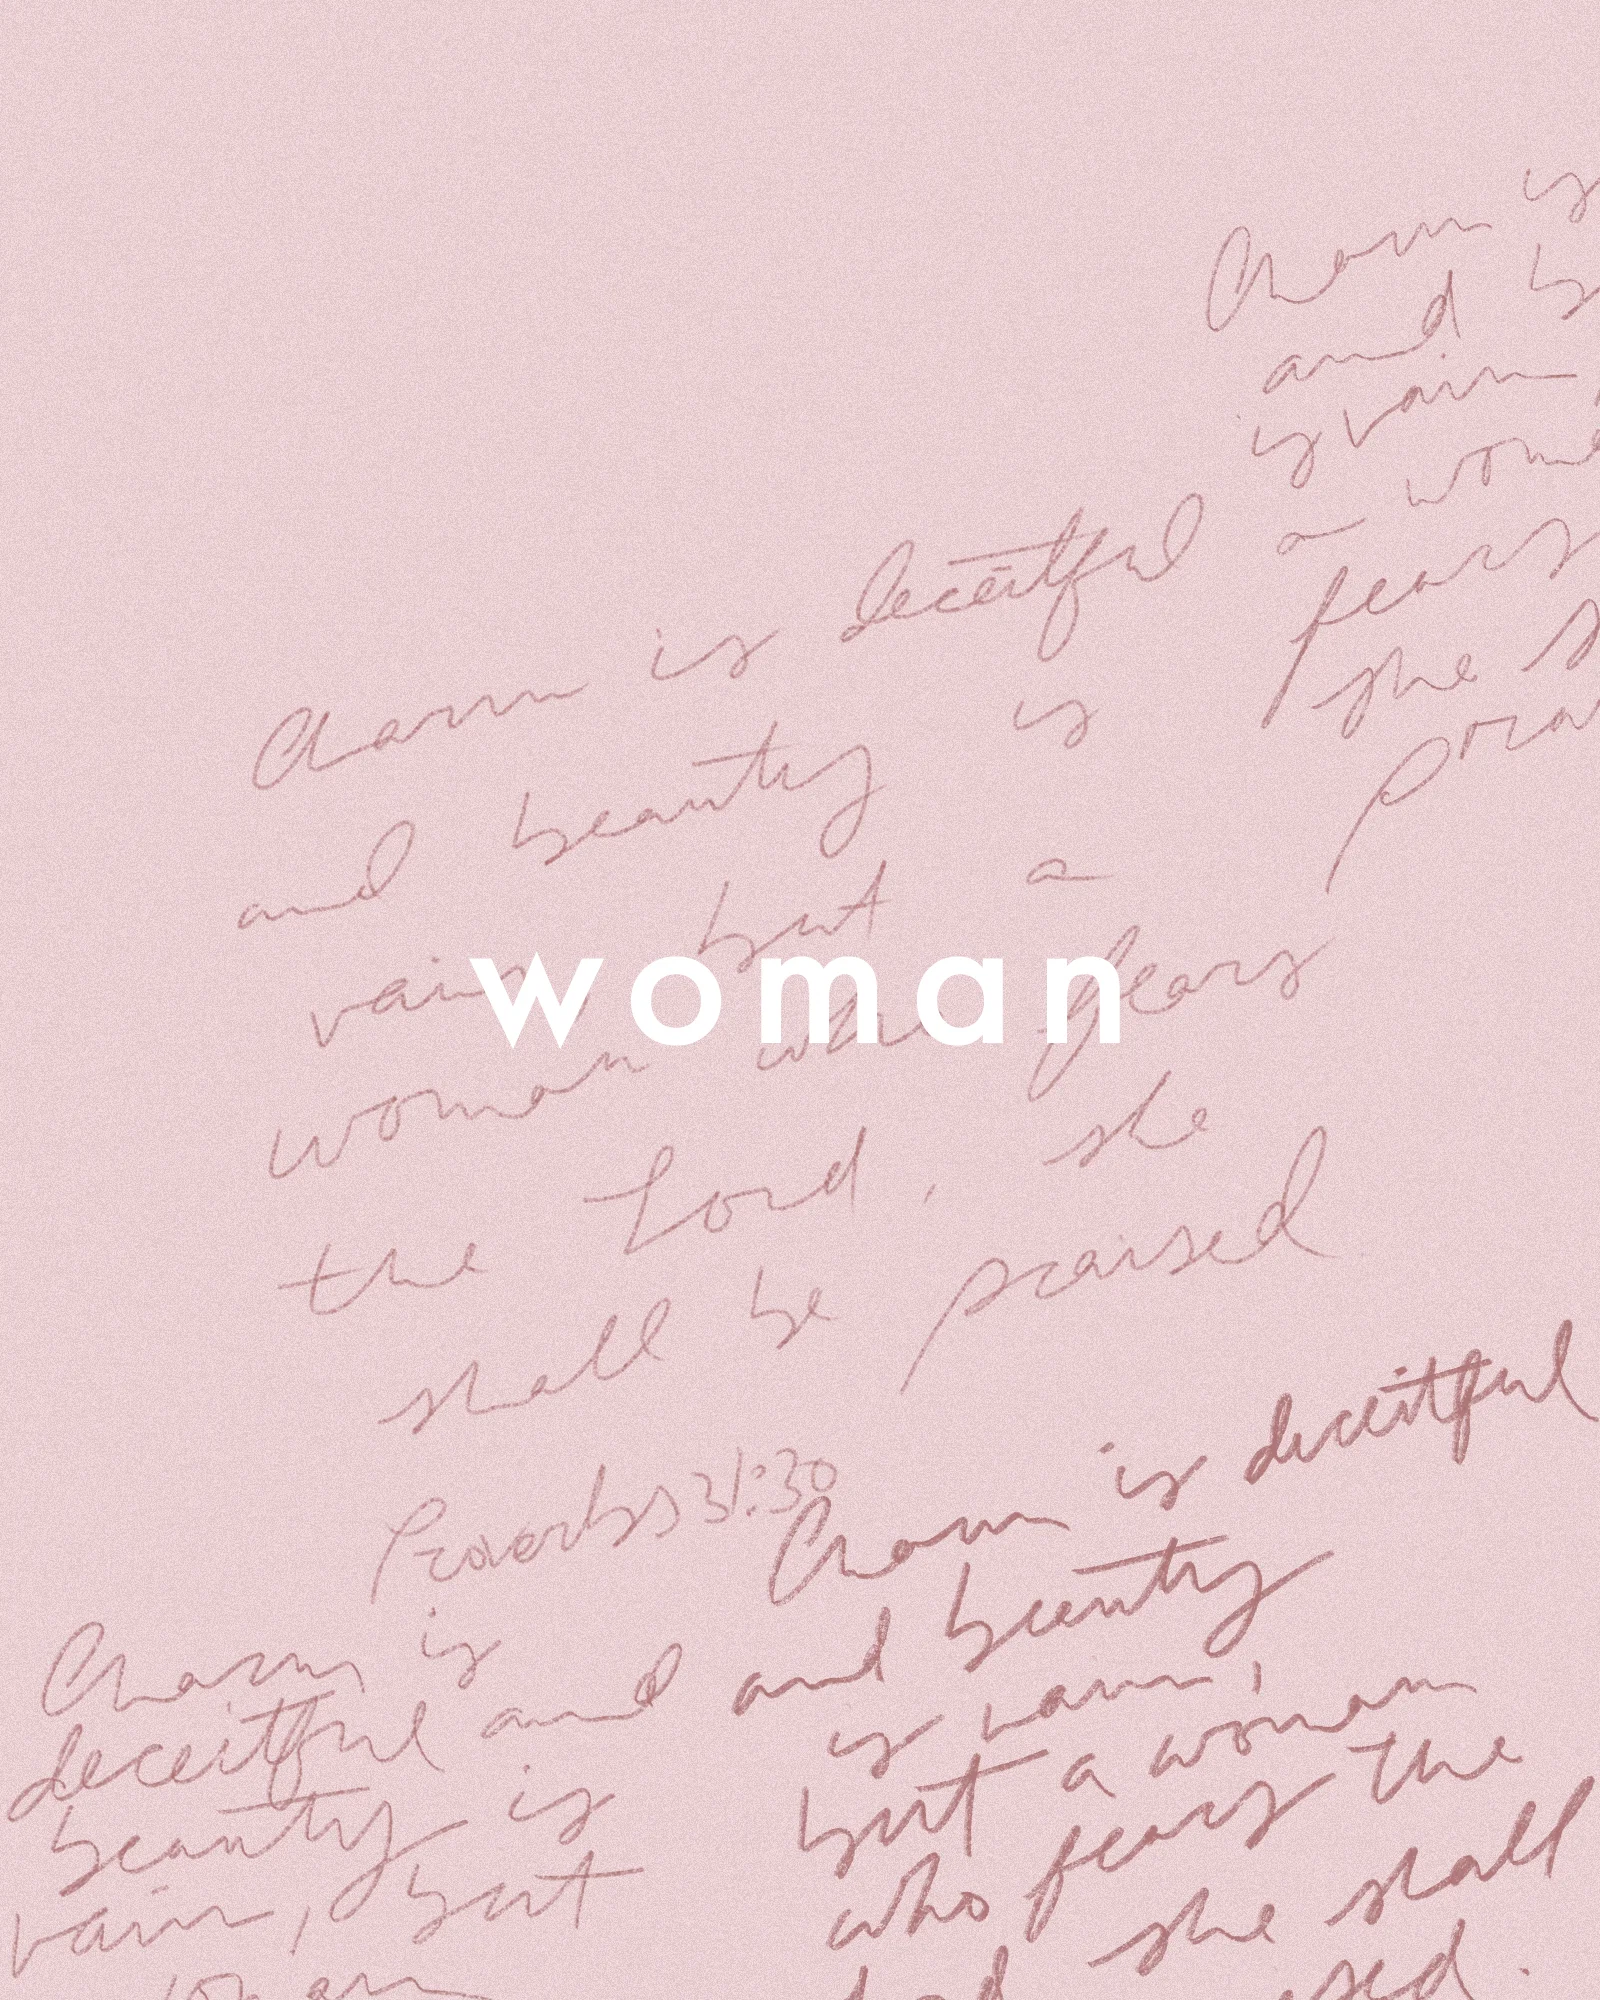 Charm is
and b
is vain,
a woma
fears
she s
prai
Charm is deceitful
and beauty is
vain but a
woman
woman who fears
the Lord, she
shall be praised
Proverbs 31:30
Charm is
deceitful and
beauty is
vain, but
woman
Charm is deceitful
and beauty
is vain,
but a woman
who fears the
she shall